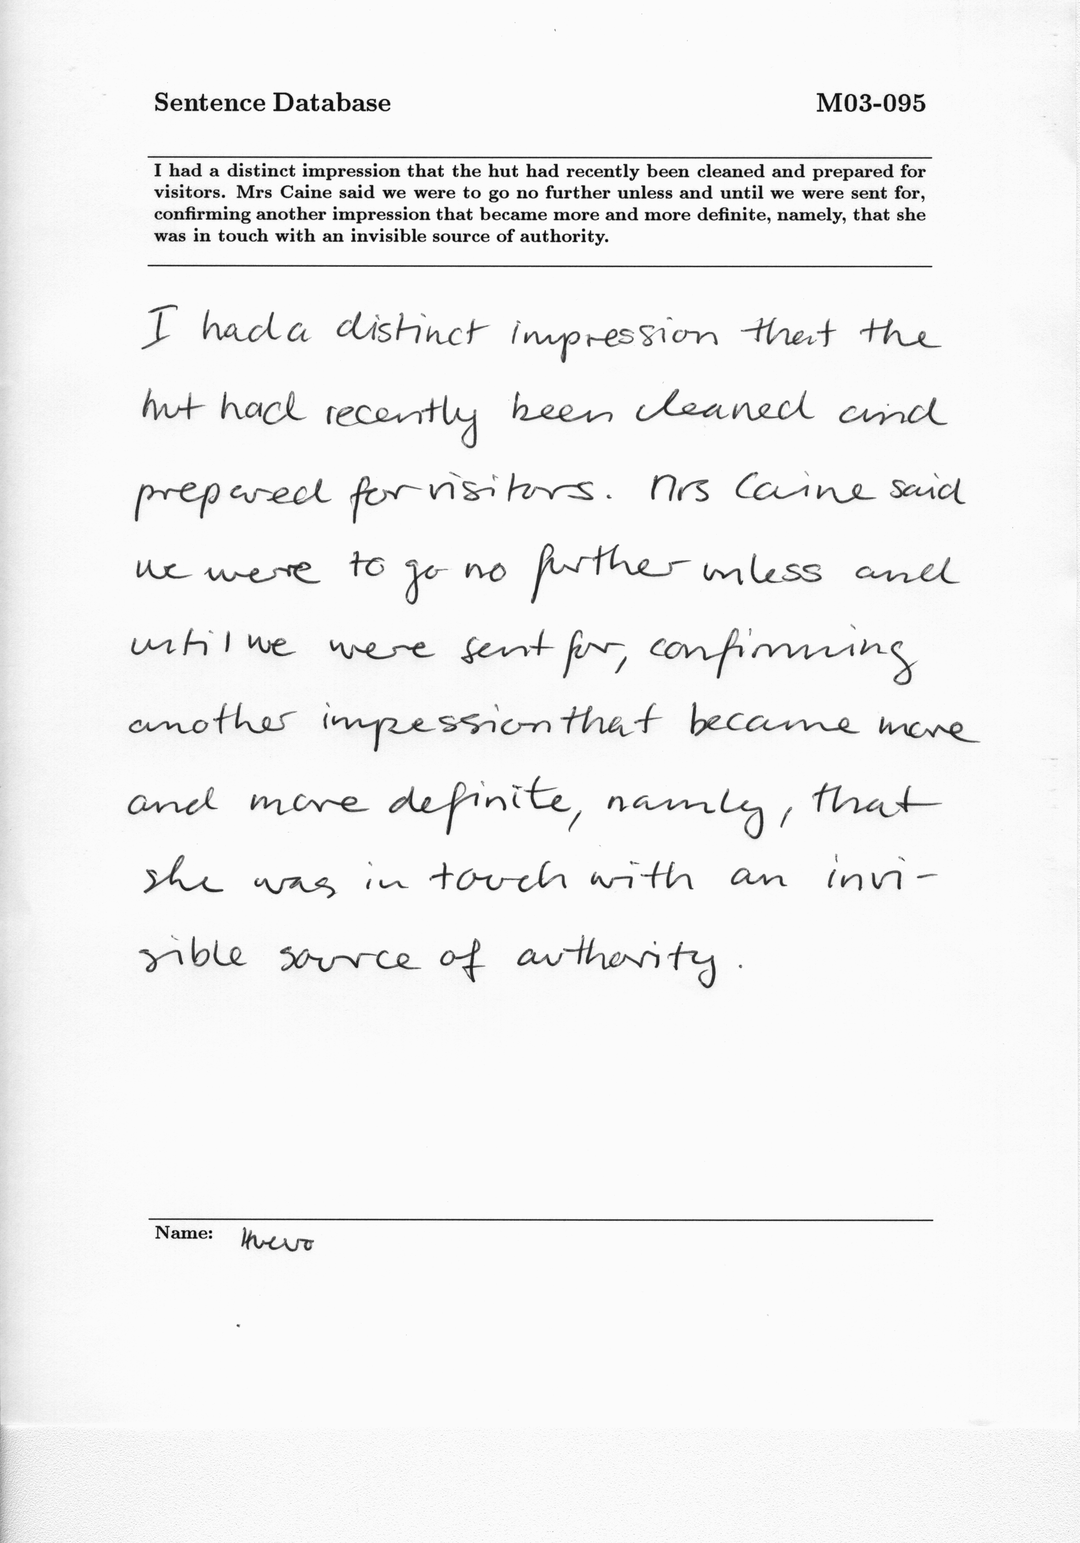 Sentence Database M03-095
I had a distinct impression that the hut had recently been cleaned and prepared for
visitors. Mrs Caine said we were to go no further unless and until we were sent for,
confirming another impression that became more and more definite, namely, that she
was in touch with an invisible source of authority.
I had a distinct impression that the
hut had recently been cleaned and
prepared for visitors. Mrs Caine said
we were to go no further unless and
until we were sent for, confirming
another impession that became more
and more definite, namly, that
she was in touch with an invi-
sible source of authority.
Name: